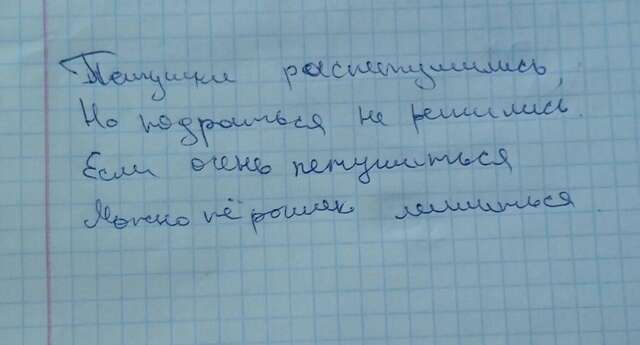 Петушки распетушились,
Но подраться не решились.
Если очень петушиться
Можно пёрышек лишиться.